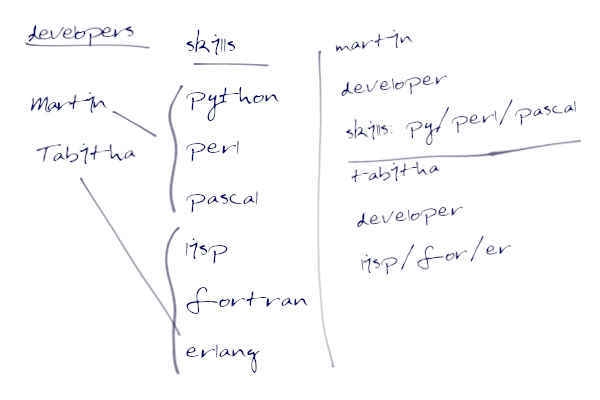 developers
Martin
Tabitha
skills
python
perl
pascal
lisp
fortran
erlang
martin
developer
skills: py/perl/pascal
tabitha
developer
lisp/for/er